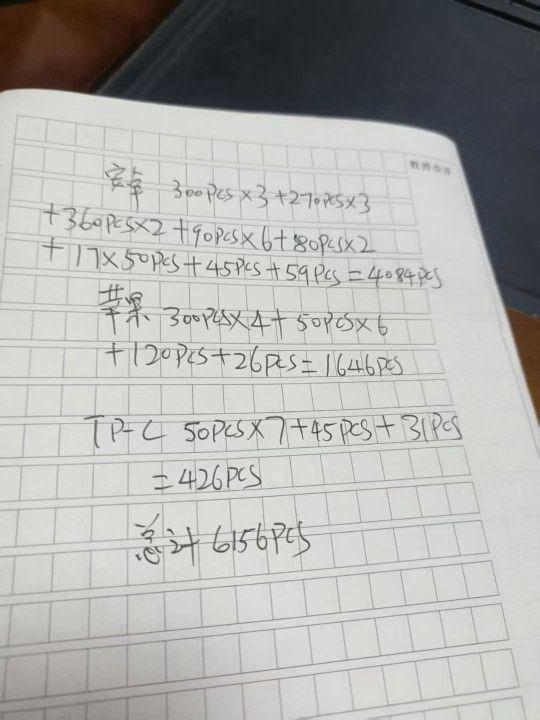 教师点评
安卓 300Pcs×3+270pcs×3
+360pcs×2+90pcs×6+80pcs×2
+17×50pcs+45pcs+59pcs=4084pcs
苹果 300pcs×4+50pcs×6
+120pcs+26pcs=1646pcs
TP-C 50pcs×7+45pcs+31pcs
=426pcs
总计 6156pcs